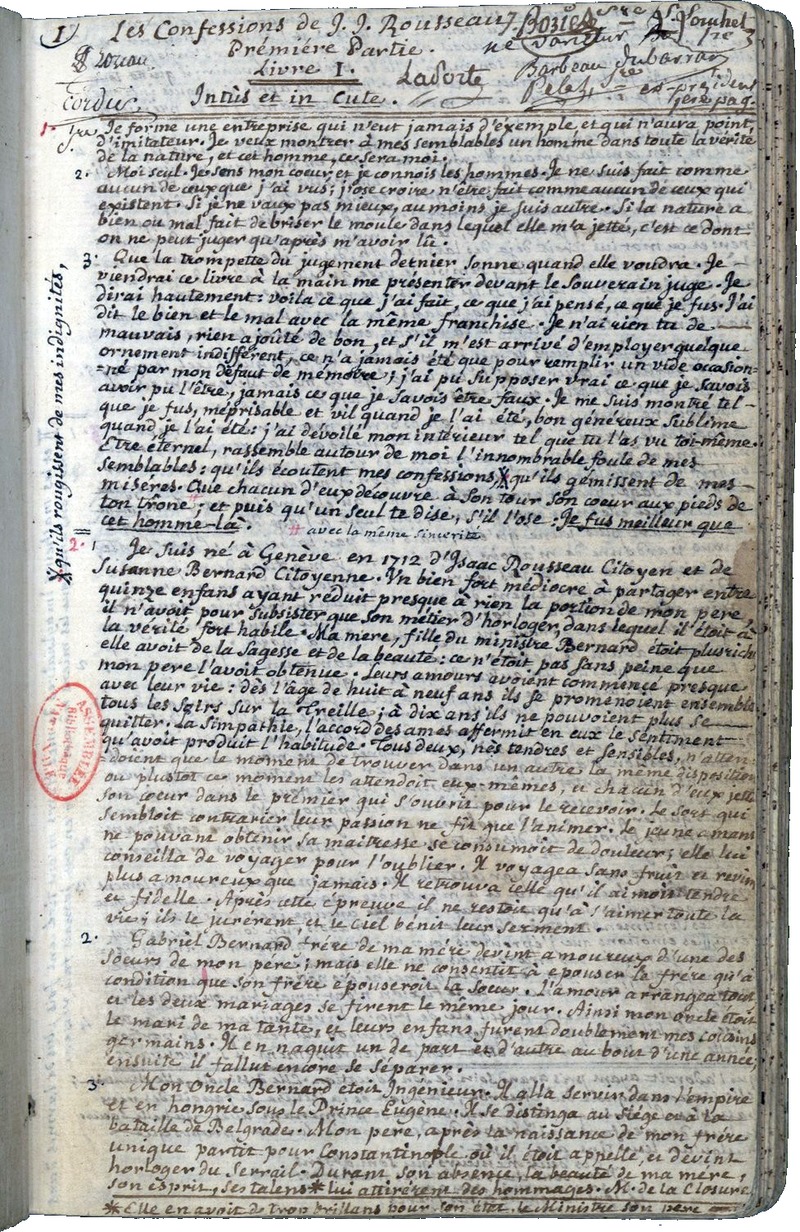 1 Les Confessions de J. J. Rousseau
Prémiére Partie.
Livre I.
LaPorte
Barbeau dubarran
Intùs et in Cute.
1. Je forme une entreprise qui n'eut jamais d'éxemple, et qui n'aura point
d'imitateur. Je veux montrer à mes semblables un homme dans toute la vérité
de la nature, et cet homme, ce sera moi.
2. Moi seul. Je sens mon cœur, et je connois les hommes. Je ne suis fait comme
aucun de ceux que j'ai vus; j'ose croire n'être fait comme aucun de ceux qui
existent. Si je ne vaux pas mieux, au moins je suis autre. Si la nature a
bien ou mal fait de briser le moule dans lequel elle m'a jetté, c'est ce dont
on ne peut juger qu'après m'avoir lû.
3. Que la trompette du jugement dernier sonne quand elle voudra. Je
viendrai ce livre à la main me présenter devant le Souverain juge. Je
dirai hautement: voila ce que j'ai fait, ce que j'ai pensé, ce que je fus. J'ai
dit le bien et le mal avec la même franchise. Je n'ai rien tu de
mauvais, rien ajoûté de bon, et s'il m'est arrivé d'employer quelque
ornement indifférent, ce n'a jamais été que pour remplir un vide ocasion=
=né par mon défaut de mémoire; j'ai pu supposer vrai ce que je savois
avoir pu l'être, jamais ce que je savois être faux. Je me suis montré tel
que je fus, méprisable et vil quand je l'ai été, bon généreux sublime
quand je l'ai été: j'ai dévoilé mon intérieur tel que tu l'as vu toi-même.
Etre éternel, rassemble autour de moi l'innombrable foule de mes
semblables: qu'ils écoutent mes confessions, X qu'ils gémissent de mes
miséres. Que chacun d'eux découvre à son tour son cœur aux pieds de
ton trône #; et puis qu'un seul te dise, s'il l'ose: Je fus meilleur que
cet homme-là.
# avec la même sincérité
X qu'ils rougissent de mes indignités,
2. 1 Je suis né à Genève en 1712 d'Isaac Rousseau Citoyen et de
Susanne Bernard Citoyenne. Un bien fort médiocre à partager entre
quinze enfans ayant réduit presque à rien la portion de mon pere,
il n'avoit pour subsister que son métier d'horloger, dans lequel il étoit à
la vérité fort habile. Ma mere, fille du ministre Bernard étoit plus riche
elle avoit de la sagesse et de la beauté: ce n'étoit pas sans peine que
mon pere l'avoit obtenue. Leurs amours avoient commencé presque
avec leur vie: dès l'âge de huit à neuf ans ils se promenoient ensemble
tous les soirs sur la Treille; à dix ans ils ne pouvoient plus se
quitter. La simpathie, l'accord des ames affermit en eux le sentiment
qu'avoit produit l'habitude. Tous deux, nés tendres et sensibles, n'atten=
=doient que le moment de trouver dans un autre la même disposition
ou plustot ce moment les attendoit eux-mêmes, et chacun d'eux jetta
son cœur dans le prémier qui s'ouvrit pour le recevoir. Le sort qui
sembloit contrarier leur passion ne fit que l'animer. Le jeune amant
ne pouvant obtenir sa maitresse se consumoit de douleur; elle lui
conseilla de voyager pour l'oublier. Il voyagea sans fruit et revint
plus amoureux que jamais. Il retrouva celle qu'il aimoit tendre
et fidelle. Après cette épreuve il ne restoit qu'à s'aimer toute la
vie; ils le jurérent, et le Ciel bénit leur serment.
2. Gabriel Bernard, frére de ma mére devint amoureux d'une des
sœurs de mon pére; mais elle ne consentit à épouser le frére qu'à
condition que son frére épouseroit la sœur. L'amour arrangea tout
et les deux mariages se firent le même jour. Ainsi mon oncle étoit
le mari de ma tante, et leurs enfans furent doublement mes cousins
germains. Il en naquit un de part et d'autre au bout d'une année;
ensuite il fallut encore se séparer.
3. Mon Oncle Bernard étoit Ingénieur. Il alla servir dans l'empire
et en hongrie sous le Prince Eugène. Il se distinga au siége et à la
bataille de Belgrade. Mon pere, après la naissance de mon frére
unique partit pour Constantinople où il étoit appellé, et devint
horloger du Serrail. Durant son absence, la beauté de ma mére,
son esprit, ses talens * lui attirérent des hommages. M. de la Closure
* Elle en avoit de trop brillans pour son état, le Ministre son pere
ASSEMBLÉE
NATIONALE
Bibliothèque